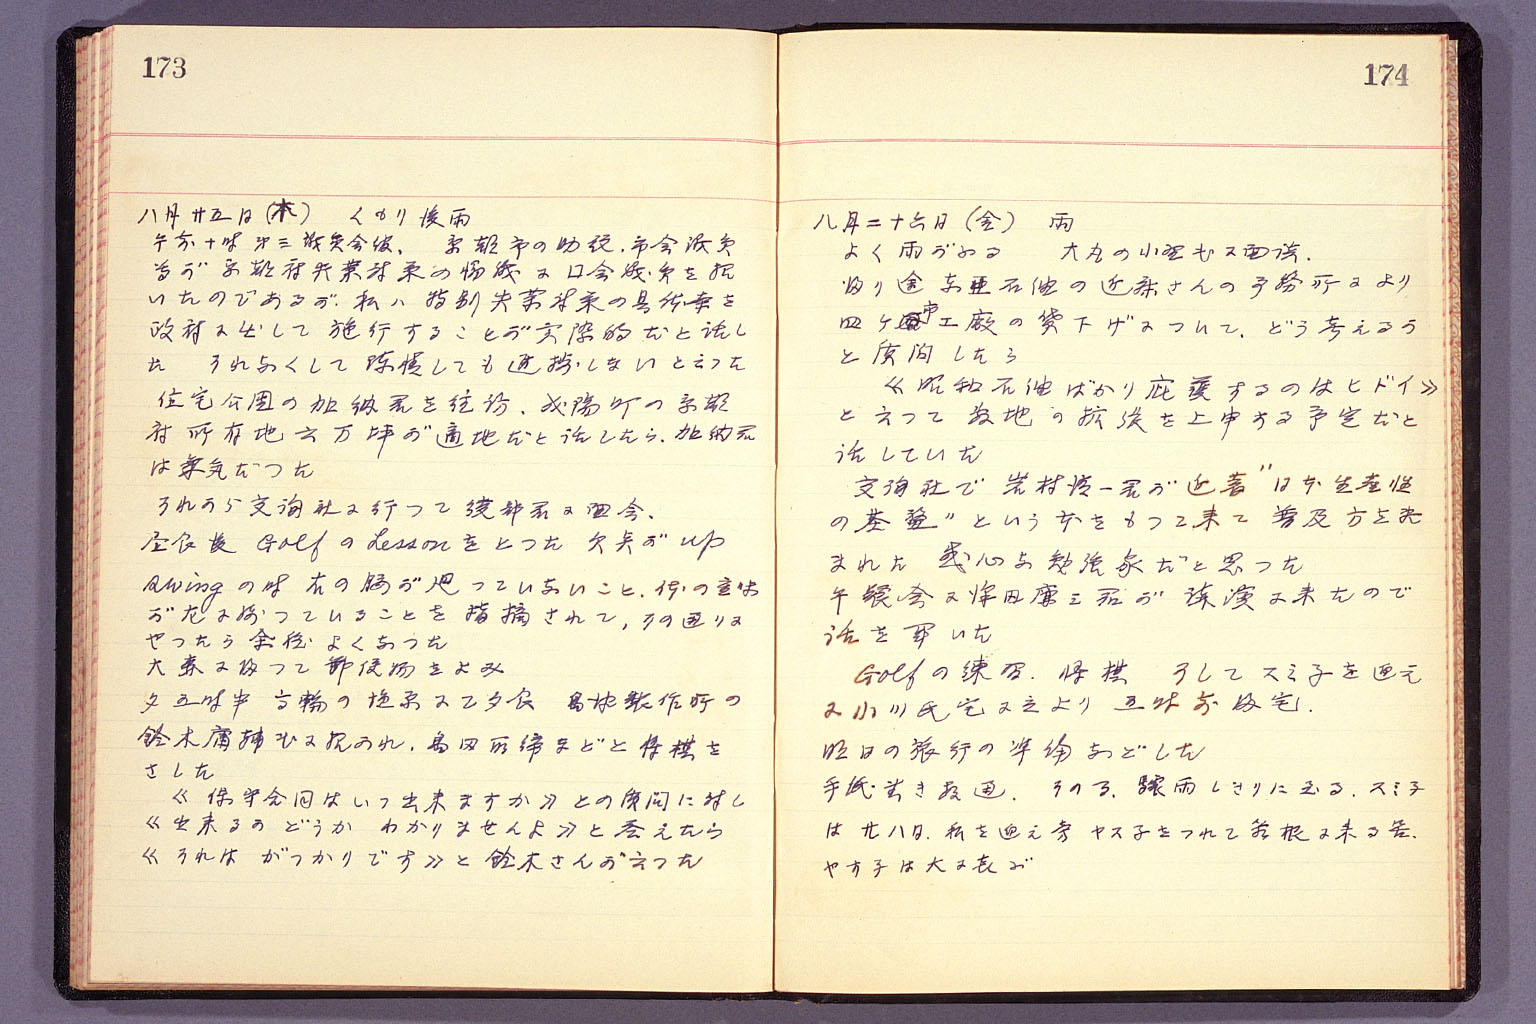 173
八月廿五日(木) くもり後雨
午前十時 第三議員会館、京都市の助役、市会議員
等が京都府失業対策の協議に国会議員を招
いたのであるが、私ハ特別失業対策の具体案を
政府に出して施行することが実際的だと話し
た それなくして陳情しても進捗しないと云つた
住宅公団の加納君を往訪、 町の京都
府所有地六万坪が適地だと話したら、加納君
は乗気だつた
それから交詢社に行つて綾部君に面会、
昼食後 GolfのLessonをとつた 欠点がup
swingの時 右の脇が つていないこと、体の重味
が左に移つていることを指摘されて、その通りに
やつたら余程よくなつた
大森に帰つて郵便物をよみ
夕五時半 高輪の にて夕食 製作所の
鈴木庸輔氏に招かれ、島田取締などと将棋を
さした
《保守合同はいつ出来ますか》との質問に対し
《出来るか どうか わかりませんよ》と答えたら
《それは がつかりです》と鈴木さんが云つた
174
八月二十六日(金) 雨
よく雨がふる 大丸の小里氏に面談、
帰り途 東亜石油の近藤さんの事務所により
四ヶ市工廠の貸下げについて、どう考えるか
と質問したら
《昭和石油ばかり庇護するのはヒドイ》
と云つて 敷地の拡張を上申する予定だと
話していた
交詢社で 岩村 一君が近著"日本生産性
の基盤"という本をもつて来て 普及方を
まれた 感心な勉強家だと思つた
午餐会に 田廉三君が 講演に来たので
話を聞いた
Golfの練習、将棋 そしてスミ子を迎え
に小川氏宅に立より 五時前帰宅、
明日の旅行の準備などした
手紙書き数通、その間、驟雨しきりに至る、スミ子
は廿八日、私を迎え旁ヤス子をつれて箱根に来る筈、
ヤす子は大に喜び